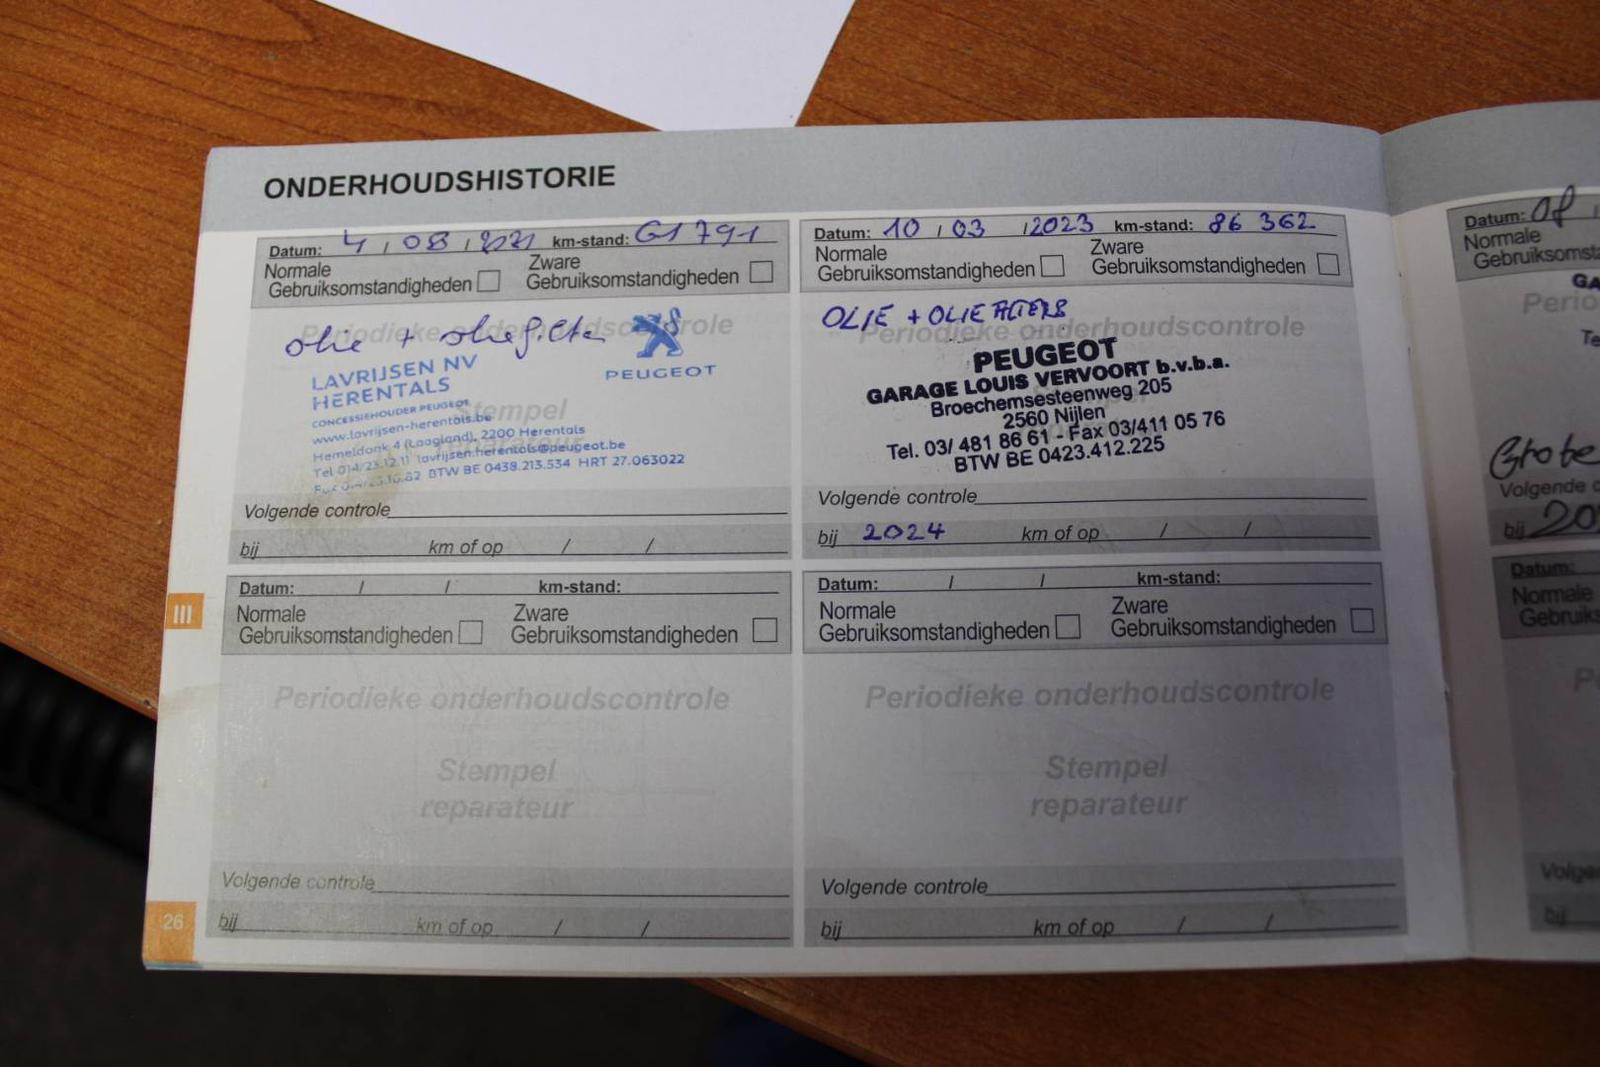 ONDERHOUDSHISTORIE
Datum: 4 / 08 / 2021 km-stand: 61 791
Normale Gebruiksomstandigheden
Zware Gebruiksomstandigheden
Periodieke onderhoudscontrole
olie + oliefilter
PEUGEOT
LAVRIJSEN NV
HERENTALS
CONCESSIEHOUDER PEUGEOT
Stempel
www.lavrijsen-herentals.be
reparateur
Hemeldonk 4 (Laagland), 2200 Herentals
Tel 014/23.12.11 lavrijsen.herentals@peugeot.be
BTW BE 0438.213.534 HRT 27.063022
Volgende controle
bij km of op / /
Datum: 10 / 03 / 2023 km-stand: 86 362
Normale Gebruiksomstandigheden
Zware Gebruiksomstandigheden
OLIE + OLIEFILTERS
Periodieke onderhoudscontrole
PEUGEOT
GARAGE LOUIS VERVOORT b.v.b.a.
Broechemsesteenweg 205
2560 Nijlen
Tel. 03/ 481 86 61 - Fax 03/411 05 76
BTW BE 0423.412.225
Volgende controle
bij 2024 km of op / /
Datum: / / km-stand:
Normale Gebruiksomstandigheden
Zware Gebruiksomstandigheden
Periodieke onderhoudscontrole
Stempel
reparateur
Volgende controle
bij km of op / /
Datum: / / km-stand:
Normale Gebruiksomstandigheden
Zware Gebruiksomstandigheden
Periodieke onderhoudscontrole
Stempel
reparateur
Volgende controle
bij km of op / /
III
26
Datum: 08 /
Normale
Gebruiksomst
GA
Perio
Te
Grote
Volgende c
bij 20
Datum:
Normale
Gebruiks
P
Volge
bij